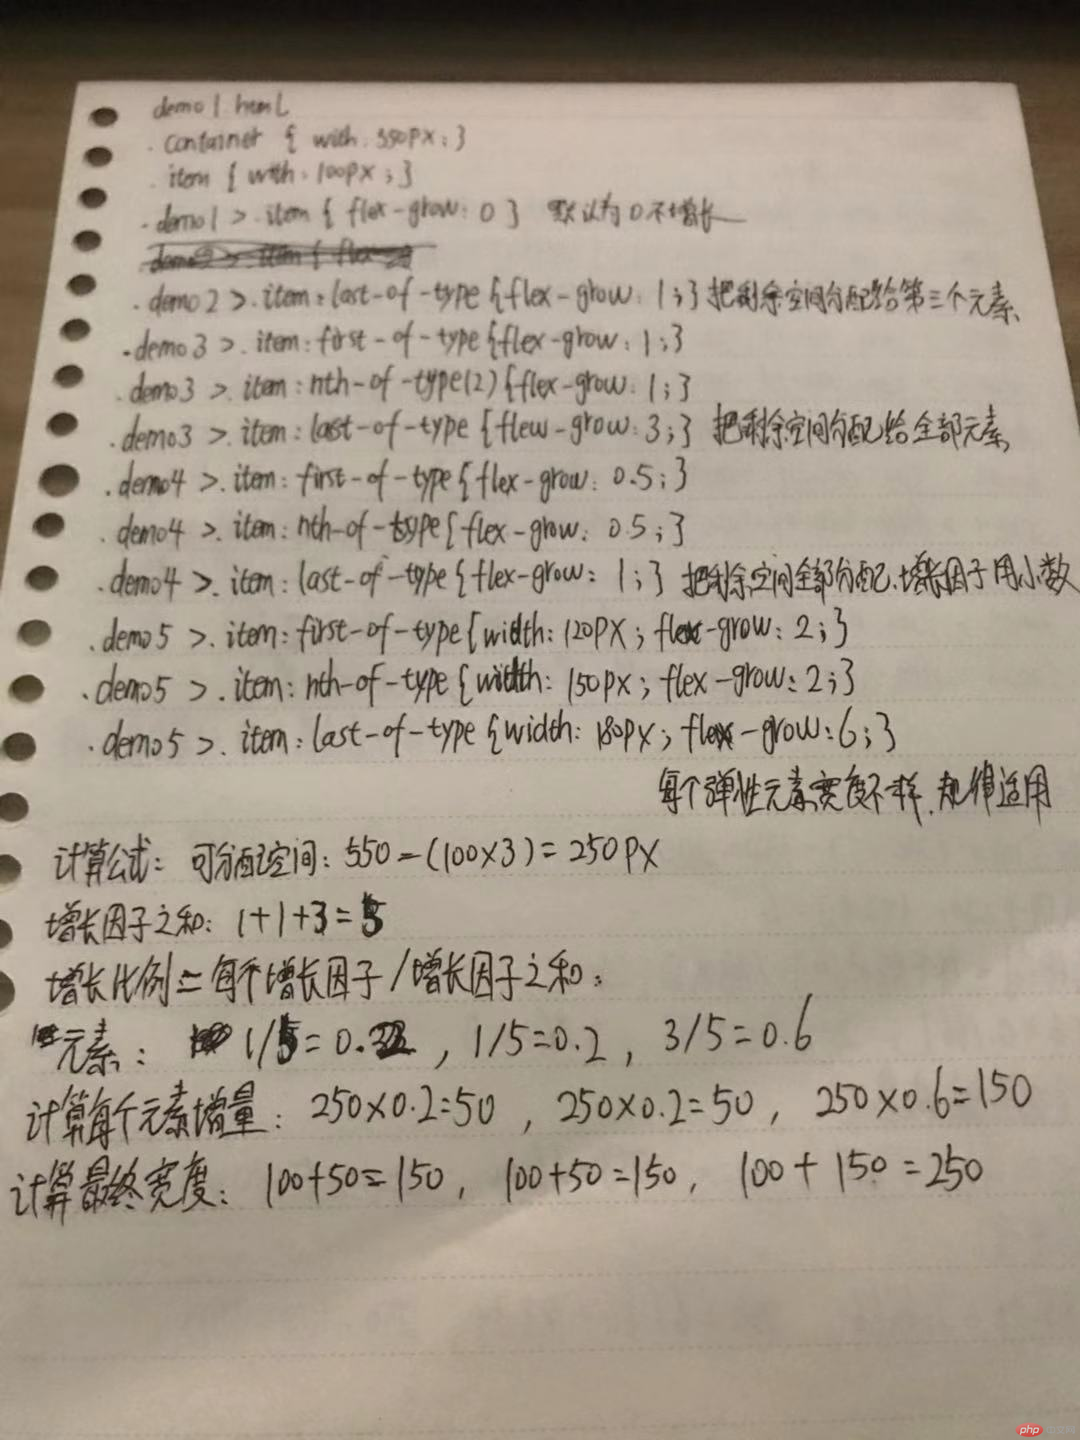 demo1.html
.container { with: 550px; }
.item { with: 100px; }
.demo1 > .item { flex-grow: 0 } 默认为0不增长
.demo2 > .item:last-of-type {flex-grow: 1;} 把剩余空间分配给第三个元素
.demo3 > .item:first-of-type {flex-grow: 1;}
.demo3 > .item:nth-of-type(2) {flex-grow: 1;}
.demo3 > .item:last-of-type {flew-grow: 3;} 把剩余空间分配给全部元素
.demo4 > .item: first-of-type {flex-grow: 0.5;}
.demo4 > .item: nth-of-type {flex-grow: 0.5;}
.demo4 > .item: last-of-type {flex-grow: 1;} 把剩余空间全部分配.增长因子用小数
.demo5 > .item: first-of-type {width: 120px; flex-grow: 2;}
.demo5 > .item: nth-of-type {width: 150px; flex-grow: 2;}
.demo5 > .item: last-of-type {width: 180px; flex-grow: 6;}
每个弹性元素宽度不一样.规律适用
计算公式: 可分配空间: 550-(100x3)=250px
增长因子之和: 1+1+3=5
增长比例=每个增长因子/增长因子之和:
元素: 1/5=0.2, 1/5=0.2, 3/5=0.6
计算每个元素增量: 250x0.2=50, 250x0.2=50, 250x0.6=150
计算最终宽度: 100+50=150, 100+50=150, 100+150=250
php